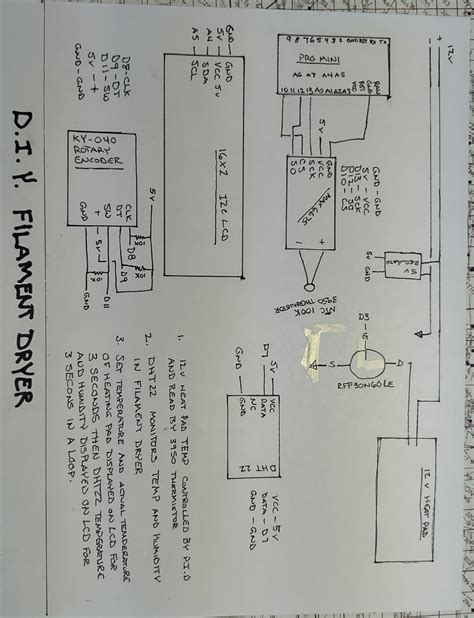 D.I.Y. FILAMENT DRYER
12V
PRO MINI
9 8 7 6 5 4 3 2 GND RST RX TX
A6 A7 A4 A5
10 11 12 13 A0 A1 A2 A3
VCC
RST
GND
RAW
5V
GND
VCC
SCK
CS
SO
MAX 6675
-
+
GND - GND
5V - VCC
D13 - SCK
D12 - SO
D10 - CS
NTC 100K
3950 THERMISTOR
5V
REGULATOR
5V
GND
D3
G
S
D
RFP30N06LE
12 V HEAT PAD
16X2 I2C LCD
GND
VCC
SDA
SCL
GND - GND
5V - VCC
A4 - SDA
A5 - SCL
KY-040
ROTARY
ENCODER
CLK
DT
SW
+
GND
D8 - CLK
D9 - DT
D11 - SW
5V - +
GND - GND
5V
D8
D9
D11
5V
GND
DHT 22
VCC
DATA
NC
GND
5V
D7
GND
VCC - 5V
DATA - D7
GND - GND
1. 12V HEAT PAD TEMP CONTROLLED BY P.I.D
AND READ BY 3950 THERMISTOR
2. DHT22 MONITORS TEMP AND HUMIDITY
IN FILAMENT DRYER
3. SET TEMPERATURE AND ACTUAL TEMPERATURE
OF HEATING PAD DISPLAYED ON LCD FOR
3 SECONDS THEN DHT22 TEMPERATURE
AND HUMIDITY DISPLAYED ON LCD FOR
3 SECONS IN A LOOP.